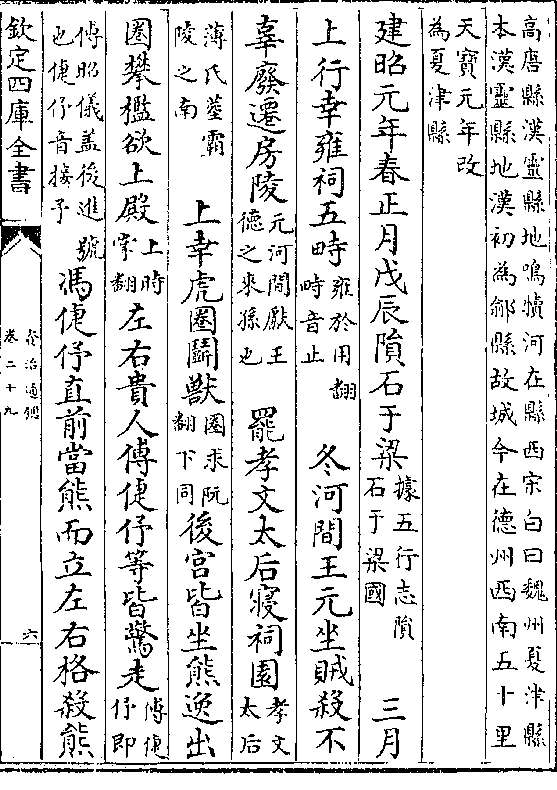 高唐縣漢靈縣地鳴犢河在縣西宋白曰魏州夏津縣
本漢靈縣地漢初為鄃縣故城今在德州西南五十里
天寶元年改
為夏津縣
建昭元年春正月戊辰隕石于梁據五行志隕石于梁國 三月
上行幸雍祠五畤雍於用翻畤音止 冬河間王元坐賊殺不
辜廢遷房陵元河間獻王德之來孫也 罷孝文太后寢祠園孝文太后
薄氏塟霸陵之南 上幸虎圈鬬獸圈求阮翻下同後宮皆坐熊逸出
圈攀檻欲上殿上時掌翻左右貴人傅倢伃等皆驚走傅倢伃即
傅昭儀盖後進號也倢伃音接予 馮倢伃直前當熊而立左右格殺熊
欽定四庫全書
資治通鑑
卷二十九
六